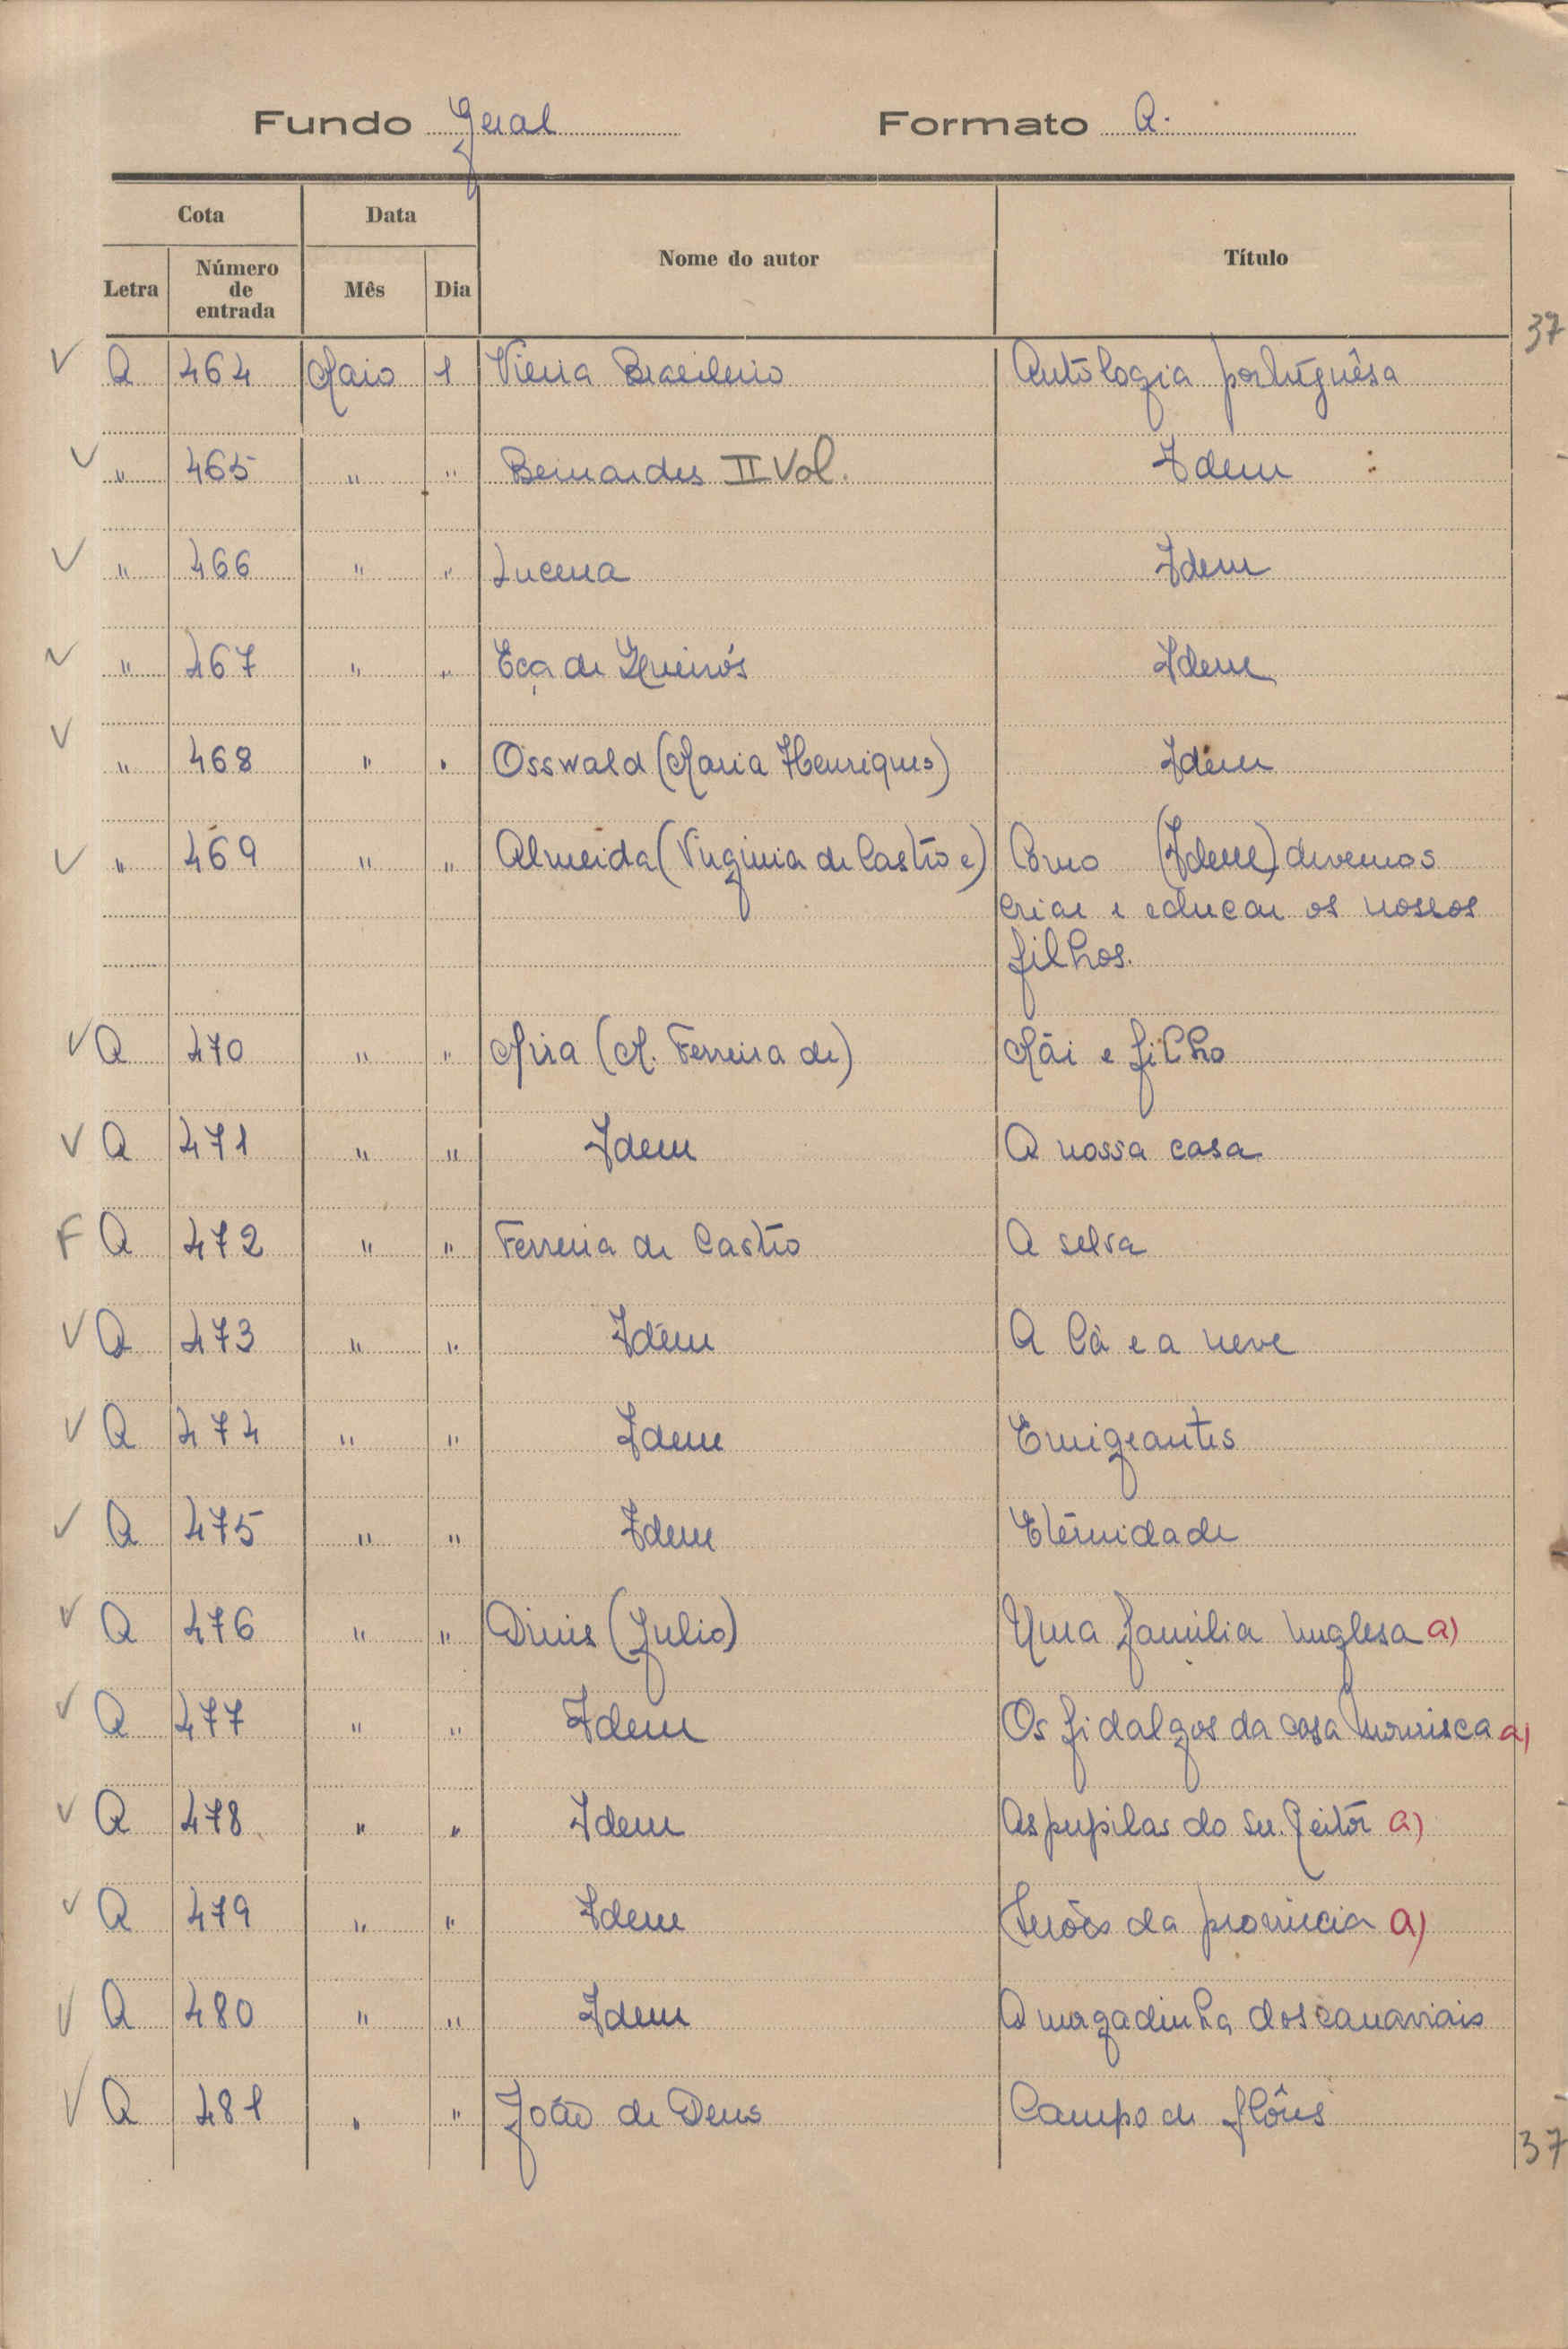 Fundo Geral Formato A.
Cota Data Nome do autor Título
Letra Número de entrada Mês Dia
37
V A 464 Maio 1 Vieira Brasileiro Antôlogia portuguêsa
V " 465 " " Bernardes II Vol. Idem :
V " 466 " " Lucena Idem
V " 467 " " Eça de Queirós Idem
V " 468 " " Osswald (Maria Henriques) Idem
V " 469 " " Almeida (Virginia de Castro e) Como (Idem) devemos
criar e educar os nossos
filhos.
V A 470 " " Mira (M. Ferreira de) Mãi e filho
V A 471 " " Idem A nossa casa
F A 472 " " Ferreira de Castro A selva
V A 473 " " Idem A lã e a neve
V A 474 " " Idem Emigrantes
V A 475 " " Idem Eternidade
V A 476 " " Dinis (Julio) Uma familia inglesa a)
V A 477 " " Idem Os fidalgos da casa mourisca a)
V A 478 " " Idem As pupilas do Sn. Reitor a)
V A 479 " " Idem Serões da provincia a)
V A 480 " " Idem A morgadinha dos canaviais
V A 481 " " João de Deus Campo de flôres
37